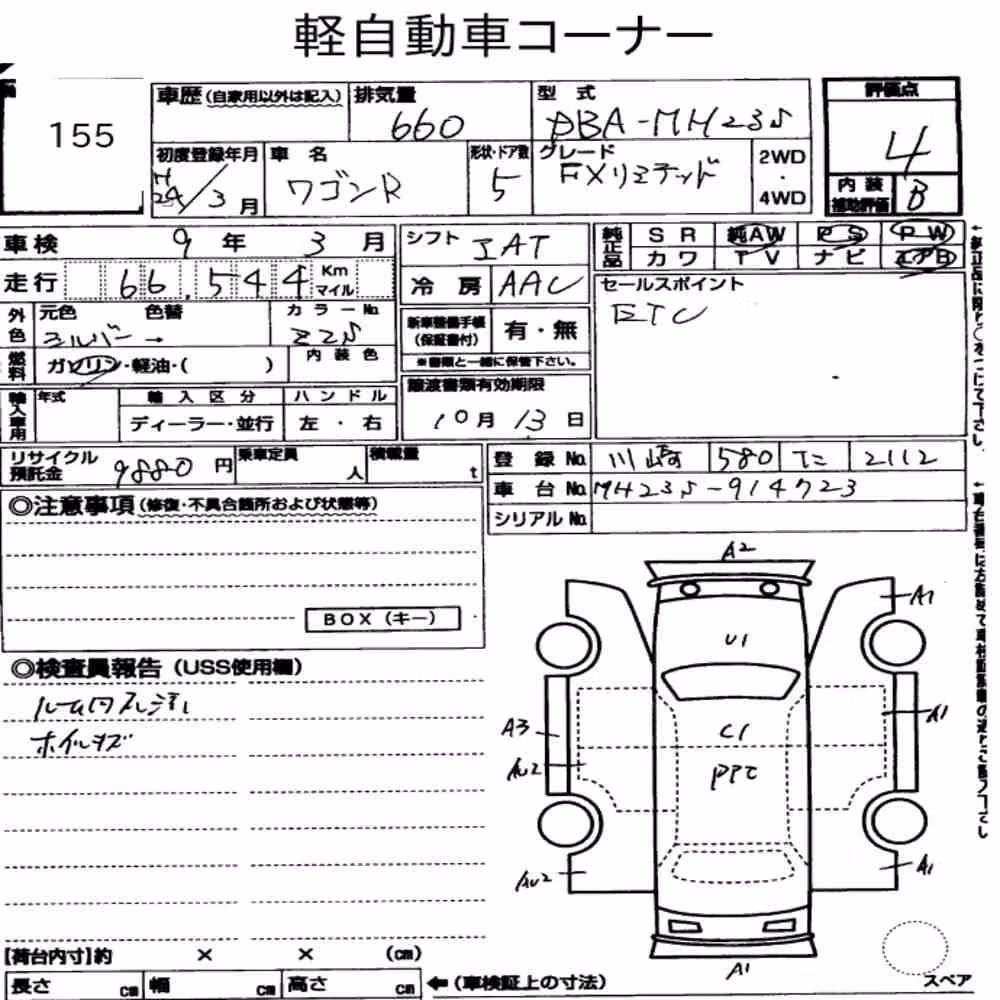 軽自動車コーナー
155
車歴 (自家用以外は記入) 排気量 型式 評価点
660 DBA-MH23S 4
初度登録年月 車名 形状・ドア数 グレード 2WD・4WD
H24/3月 ワゴンR 5 FXリミテッド
内装補助評価 B
車検 9年 3月 シフト IAT 純正品 SR 純AW PS PW
カワ TV ナビ エアB
走行 66,544 Km マイル 冷房 AAC セールスポイント
ETC
外色 元色 色替 カラーNo.
シルバー → Z2S
新車整備手帳(保証書付) 有・無
燃料 ガソリン・軽油・( ) 内装色 ※書類と一緒に保管下さい。
輸入車用 年式 輸入区分 ハンドル 譲渡書類有効期限
ディーラー・並行 左・右 10月 13日
リサイクル預託金 9880円 乗車定員 人 積載量 t
登録No. 川崎 580 2112
車台No. MH23S-914723
シリアルNo.
◎注意事項 (修復・不具合箇所および状態等)
BOX(キー)
◎検査員報告 (USS使用欄)
ホイルキズ
A2
A1
U1
A3
C1
A1
AU2
PPC
AU2
A1
A1
[荷台内寸]約 × × (cm)
長さ cm 幅 cm 高さ cm ←(車検証上の寸法)
スペア